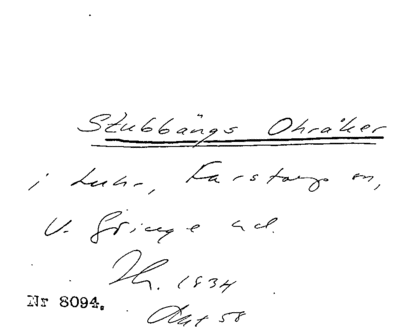 Stubbängs Ohråker
i Luhr, Farstorps sn,
V. Göinge hd.
1934
Nr 8094.
58